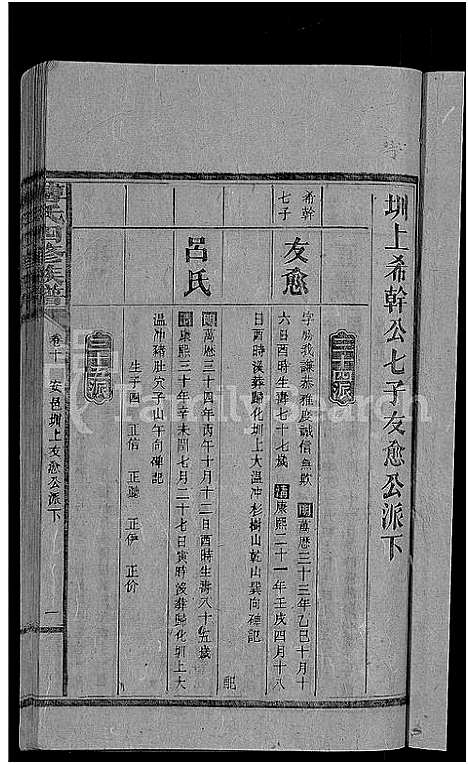 圳上希幹公七子友愈公派下
三十四派
希幹七子
友愈
字勝我謙恭雅度誠信無欺明萬歷三十三年乙巳十月十
六日酉時生壽七十七歲清康熙二十一年壬戌四月十八
日酉時後葬歸化圳上大溫冲杉樹山乾山巽向碑記
配
呂氏
明萬歷三十四年丙午十月十二日酉時生壽八十五歲
清康熙三十年辛未閏七月二十七日寅時後葬歸化圳上大
溫冲豬肚穴子山午向碑記
生子四 正信 正聽 正伊 正价
三十五派
氏四修族譜
卷十 安邑圳上友愈公派下
一
FamilySearch